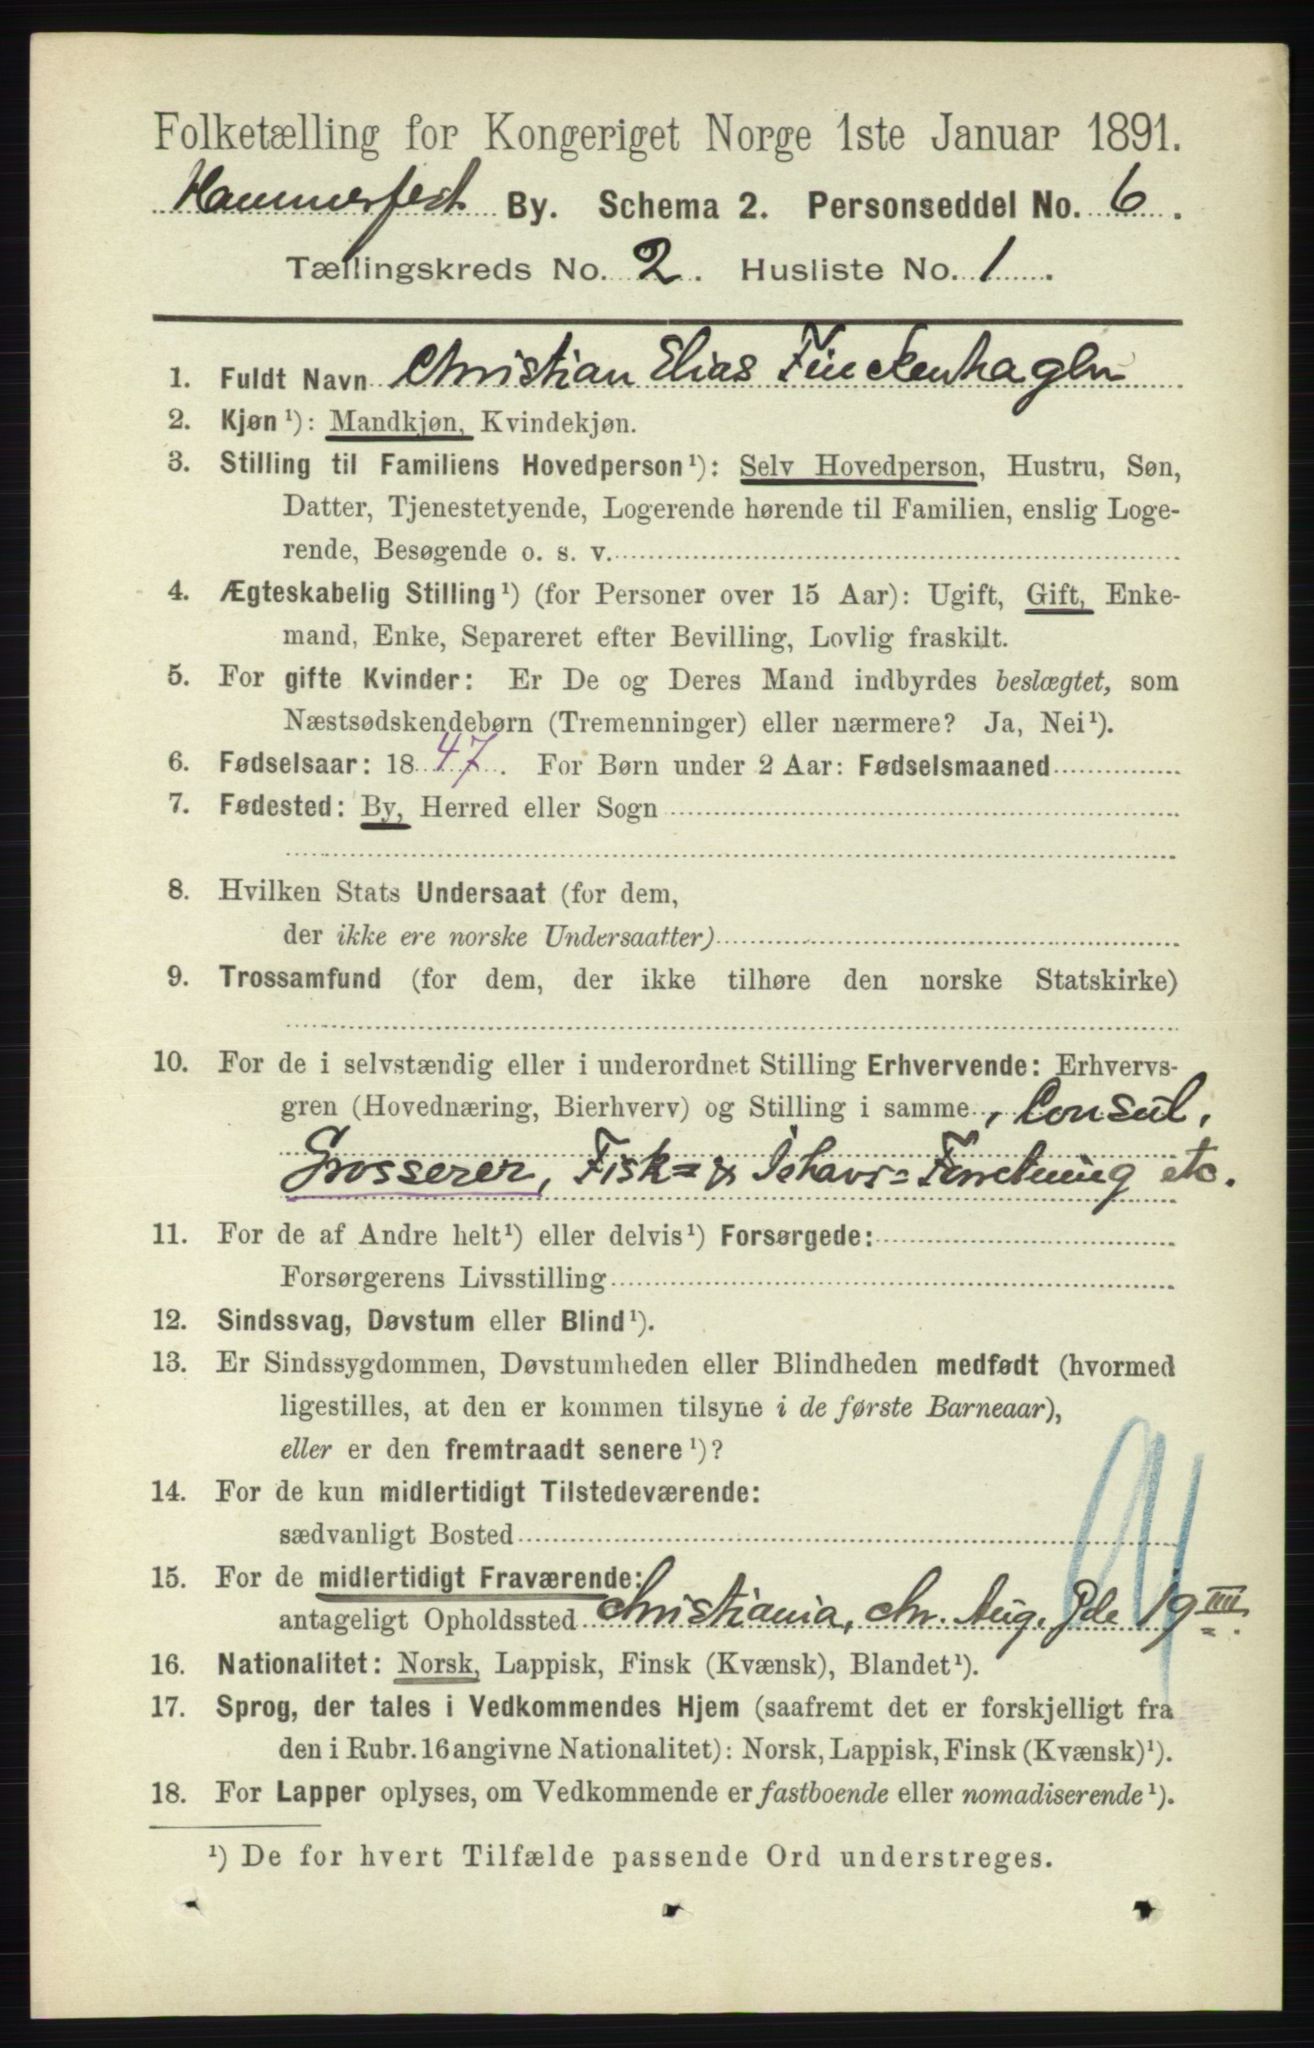 Folketælling for Kongeriget Norge 1ste Januar 1891.
Hammerfest By. Schema 2. Personseddel No. 6.
Tællingskreds No. 2. Husliste No. 1.
1. Fuldt Navn Christian Elias Finckenhagen
2. Kjøn¹): Mandkjøn, Kvindekjøn.
3. Stilling til Familiens Hovedperson¹): Selv Hovedperson, Hustru, Søn,
Datter, Tjenestetyende, Logerende hørende til Familien, enslig Loge-
rende, Besøgende o. s. v.
4. Ægteskabelig Stilling¹) (for Personer over 15 Aar): Ugift, Gift, Enke-
mand, Enke, Separeret efter Bevilling, Lovlig fraskilt.
5. For gifte Kvinder: Er De og Deres Mand indbyrdes beslægtet, som
Næstsødskendebørn (Tremenninger) eller nærmere? Ja, Nei¹).
6. Fødselsaar: 1847. For Børn under 2 Aar: Fødselsmaaned
7. Fødested: By, Herred eller Sogn
8. Hvilken Stats Undersaat (for dem,
der ikke ere norske Undersaatter)
9. Trossamfund (for dem, der ikke tilhøre den norske Statskirke)
10. For de i selvstændig eller i underordnet Stilling Erhvervende: Erhvervs-
gren (Hovednæring, Bierhverv) og Stilling i samme, Consul,
Grosserer, Fisk= & Ishavs=Forretning etc.
11. For de af Andre helt¹) eller delvis¹) Forsørgede:
Forsørgerens Livsstilling
12. Sindssvag, Døvstum eller Blind¹).
13. Er Sindssygdommen, Døvstumheden eller Blindheden medfødt (hvormed
ligestilles, at den er kommen tilsyne i de første Barneaar),
eller er den fremtraadt senere¹)?
14. For de kun midlertidigt Tilstedeværende:
sædvanligt Bosted
15. For de midlertidigt Fraværende:
antageligt Opholdssted Christiania, Chr. Aug. Gde 19 IIII
16. Nationalitet: Norsk, Lappisk, Finsk (Kvænsk), Blandet¹).
17. Sprog, der tales i Vedkommendes Hjem (saafremt det er forskjelligt fra
den i Rubr. 16 angivne Nationalitet): Norsk, Lappisk, Finsk (Kvænsk)¹).
18. For Lapper oplyses, om Vedkommende er fastboende eller nomadiserende¹).
¹) De for hvert Tilfælde passende Ord understreges.